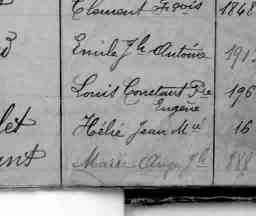 Clement Fçois 1848
Emile Jh Antoine 191
Louis Constant Pre 196
Eugène
let Hélié Jean Mie 16
ant Marie Ange Jh